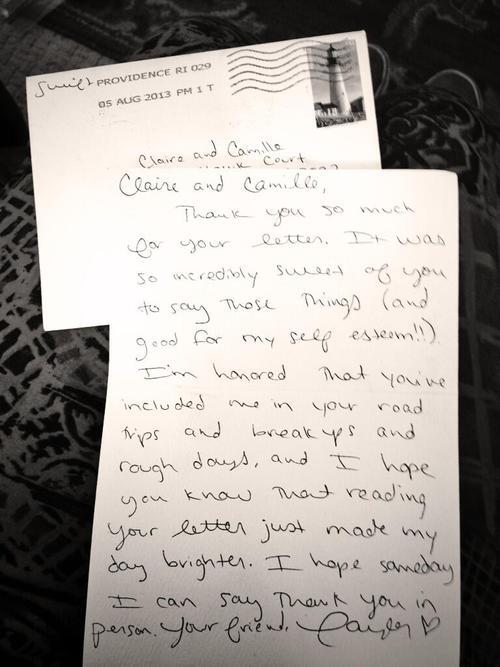 Swift PROVIDENCE RI 029
05 AUG 2013 PM 1 T
Claire and Camille
Court
Claire and Camille,
Thank you so much
for your letter. It was
so incredibly sweet of you
to say those things (and
good for my self esteem!!).
I'm honored that you've
included me in your road
trips and breakups and
rough days, and I hope
you know that reading
your letter just made my
day brighter. I hope someday
I can say thank you in
person. Your friend, Taylor ♡